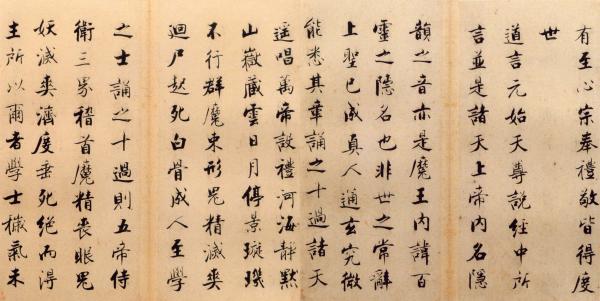 有至心宗奉禮敬皆得度
世
道言元始天尊說經中所
言並是諸天上帝內名隱
韻之音亦是魔王內諱百
靈之隱名也非世之常辭
上聖已成真人通玄究微
能悉其章誦之十過諸天
遥唱萬帝設禮河海靜默
山嶽藏雲日月停景璇璣
不行群魔束形鬼精滅爽
迴尸起死白骨成人至學
之士誦之十過則五帝侍
衛三界稽首魔精喪眼鬼
妖滅爽濟度垂死絕而得
生所以爾者學士穢氣未